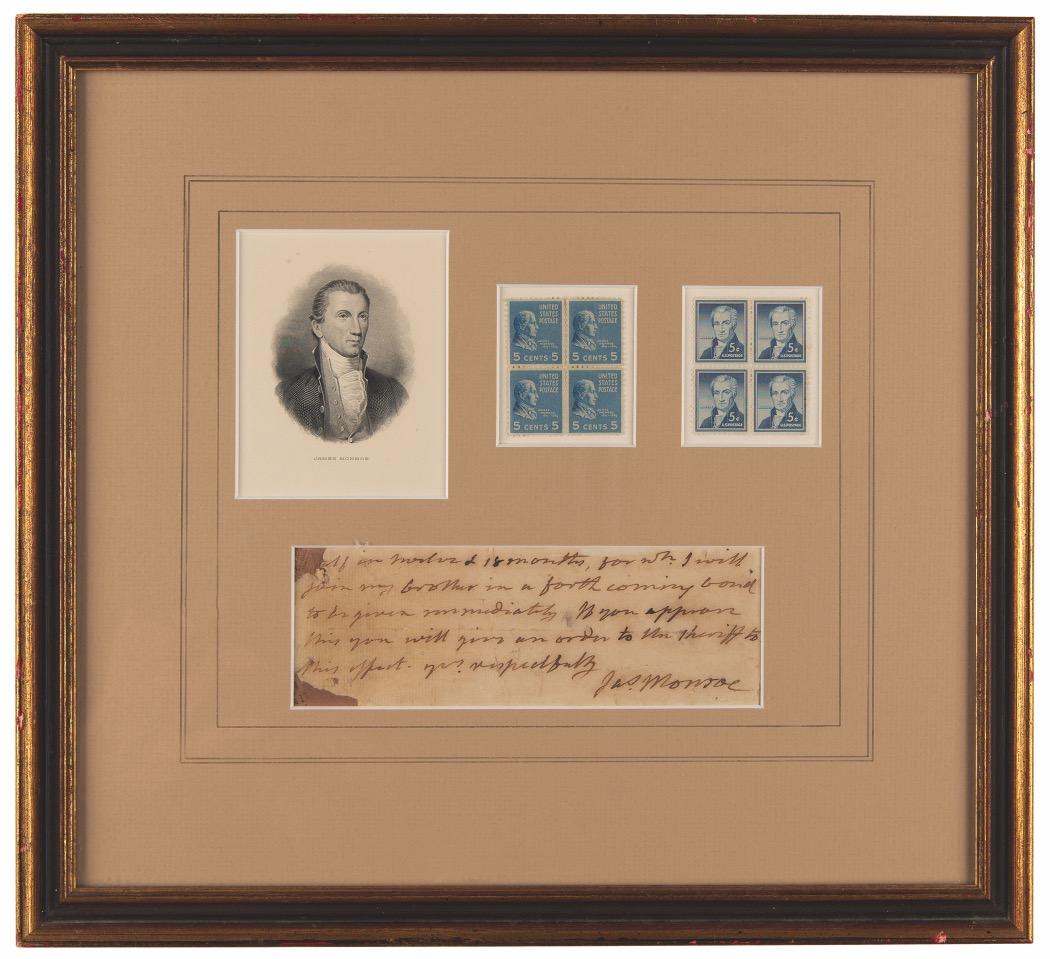 JAMES MONROE
UNITED STATES POSTAGE
JAMES MONROE
5 CENTS 5
UNITED STATES POSTAGE
JAMES MONROE
5 CENTS 5
UNITED STATES POSTAGE
JAMES MONROE
5 CENTS 5
UNITED STATES POSTAGE
JAMES MONROE
5 CENTS 5
5¢
U.S. POSTAGE
5¢
U.S. POSTAGE
5¢
U.S. POSTAGE
5¢
U.S. POSTAGE
in twelve & 18 months, for wh. I will
join my brother in a forth coming bond
to be given immediately. If you approve
this you will give an order to the sheriff to
this effect. yrs. respectfully
Jas. Monroe